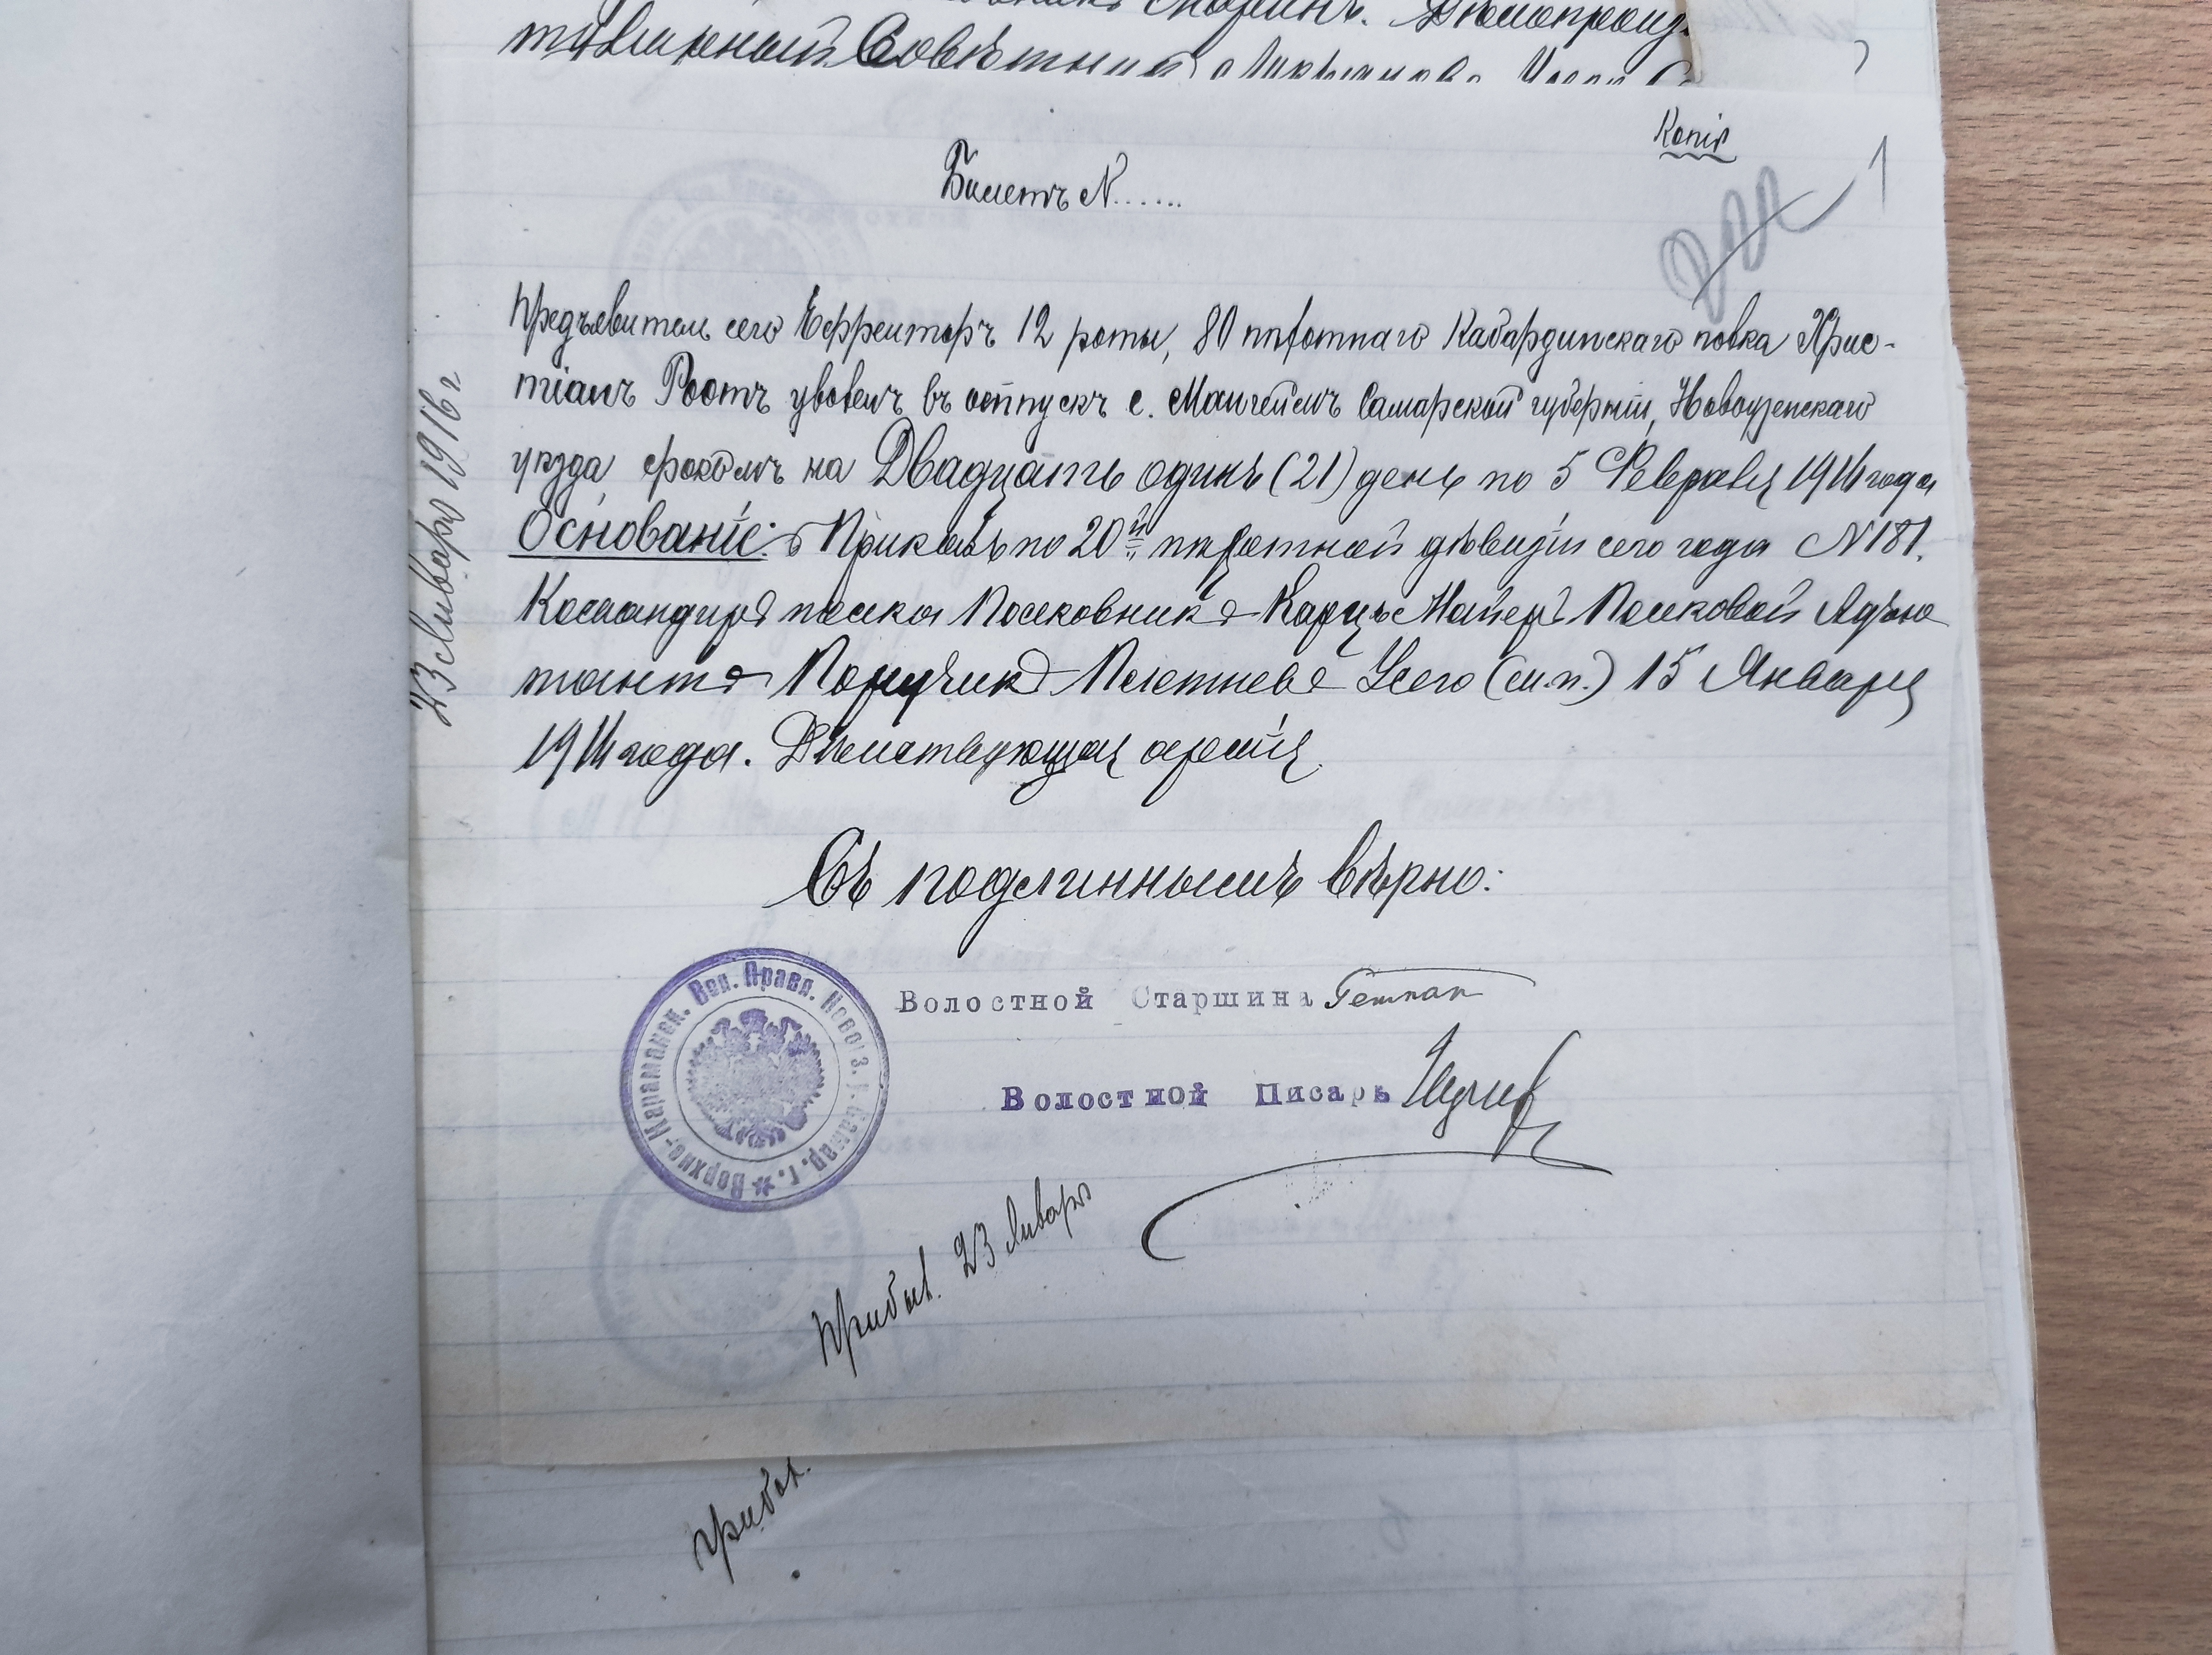 титулярный Совѣтникъ
Копія
Билетъ N......
1
Предъявитель сего Ефрейторъ 12 роты, 80 пѣхотнаго Кабардинскаго полка Хрис-
тіанъ Роотъ уволенъ въ отпускъ с. Мангеймъ Самарской губерніи, Новоузенскаго
уѣзда срокомъ на Двадцать одинъ (21) день по 5 Февраля 1916 года
Основаніе: Приказъ по 20й пѣхотной дѣвизіи сего года N 181.
Командиръ полка Полковникъ Карцъ Майеръ Полковой Адъю
тантъ Поручикъ Плетневъ (м.п.) 15 Января
1916 года. Дѣйствующая армія.
Съ подлиннымъ вѣрно:
Волостной Старшина
Волостной Писарь
Верхне-Караманск. Вол. Правл. Новоуз. у. Самар. г.
Прибыл. 23 Январь
прибыл.
23 Январь 1916 г